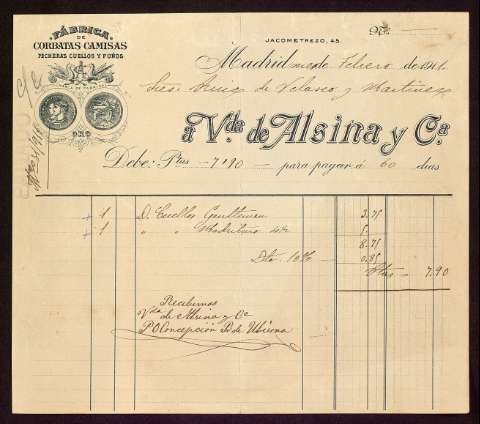 FÁBRICA
DE
CORBATAS CAMISAS
PECHERAS CUELLOS Y PUÑOS
ORO
JACOMETREZO, 45
Madrid mes de Febrero de 1911.
Sres. Ruiz de Velasco y Martínez
á Vda. de Alsina y Ca.
Debe: Ptas 7'90 para pagar á 60 dias
1 D. Cuellos Gentleman 3.75
1 " " 5.
8.75
Dto. 10% 0.85
Ptas 7.90
Recibimos
Vda de Alsina y Ca
P.O. Concepción